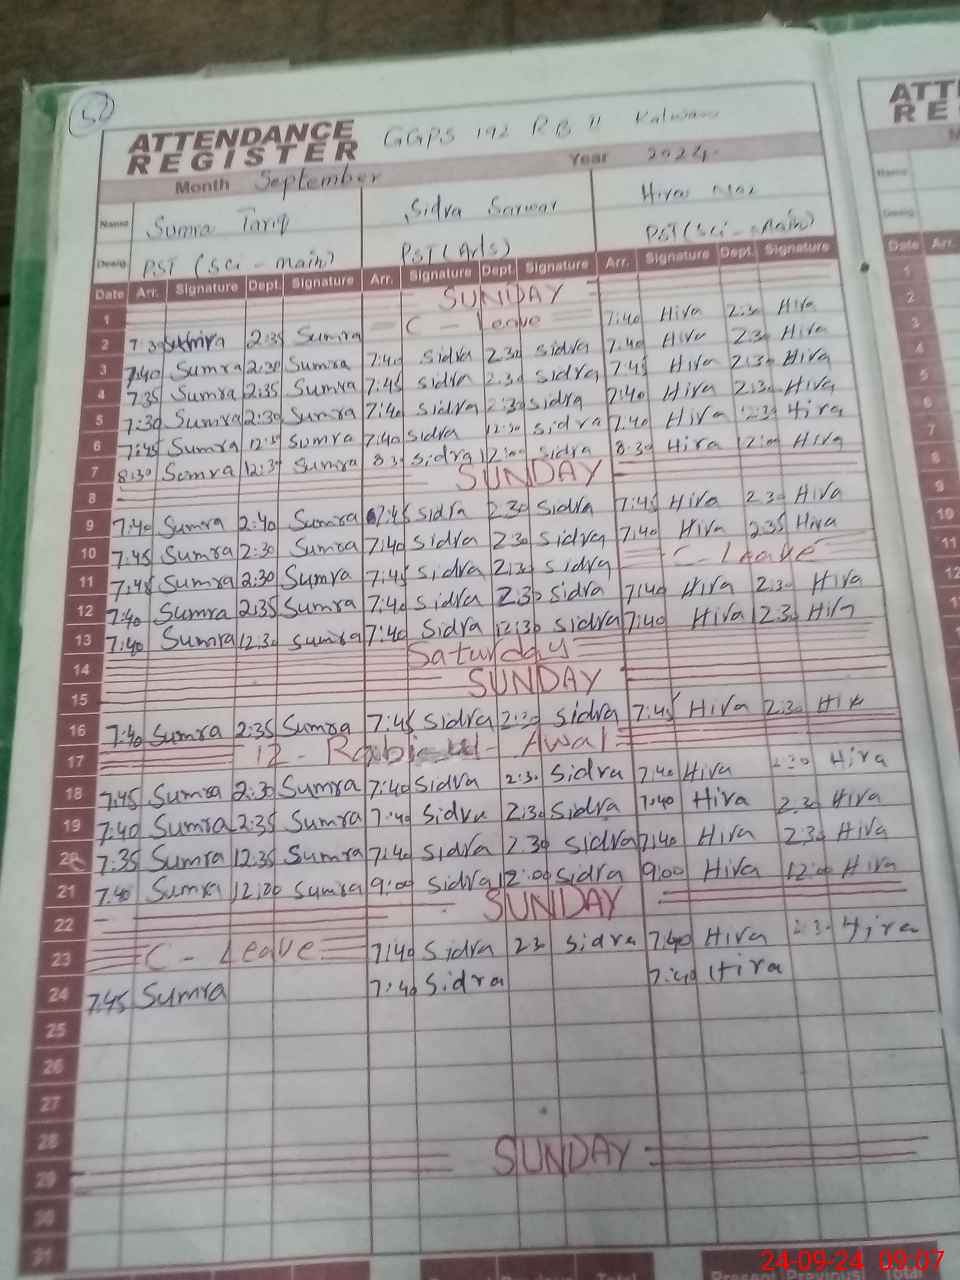 52
ATTENDANCE REGISTER GGPS 192 RB II
Month September Year 2024
Name Sumra Tariq Sidra Sarwar Hira Naz
Desig. PST (Sci - main) PST (Arts) PST (Sci - Main)
Date Arr. Signature Dept. Signature Arr. Signature Dept. Signature Arr. Signature Dept. Signature
1 SUNDAY
2 7:30 Sumra 2:35 Sumra C - Leave 7:40 Hira 2:30 Hira
3 7:40 Sumra 2:30 Sumra 7:40 Sidra 2:30 Sidra 7:40 Hira 2:30 Hira
4 7:35 Sumra 2:35 Sumra 7:45 Sidra 2:30 Sidra 7:45 Hira 2:30 Hira
5 7:30 Sumra 2:30 Sumra 7:40 Sidra 2:30 Sidra 7:40 Hira 2:30 Hira
6 7:45 Sumra Sumra 7:40 Sidra 12:30 Sidra 7:40 Hira 12:30 Hira
7 8:30 Sumra 12:37 Sumra 8:30 Sidra 12:00 Sidra 8:30 Hira 12:00 Hira
8 SUNDAY
9 7:40 Sumra 2:40 Sumra 7:45 Sidra 2:30 Sidra 7:45 Hira 2:30 Hira
10 7:45 Sumra 2:30 Sumra 7:40 Sidra 2:30 Sidra 7:40 Hira 2:35 Hira
11 7:45 Sumra 2:30 Sumra 7:45 Sidra 2:30 Sidra C - Leave
12 7:40 Sumra 2:35 Sumra 7:40 Sidra 2:30 Sidra 7:40 Hira 2:30 Hira
13 7:40 Sumra 12:30 Sumra 7:40 Sidra 12:30 Sidra 7:40 Hira 12:30 Hira
14 Saturday
15 SUNDAY
16 7:40 Sumra 2:35 Sumra 7:45 Sidra 2:30 Sidra 7:45 Hira 2:30 Hira
17 12 - Rabi - Awal
18 7:45 Sumra 2:30 Sumra 7:40 Sidra 2:30 Sidra 7:40 Hira 2:30 Hira
19 7:40 Sumra 2:35 Sumra 7:40 Sidra 2:30 Sidra 7:40 Hira 2:30 Hira
20 7:35 Sumra 12:35 Sumra 7:40 Sidra 2:30 Sidra 7:40 Hira 2:30 Hira
21 7:40 Sumra 12:00 Sumra 9:00 Sidra 12:00 Sidra 9:00 Hira 12:00 Hira
22 SUNDAY
23 C - Leave 7:40 Sidra 2:30 Sidra 7:40 Hira 2:30 Hira
24 7:45 Sumra 7:40 Sidra 7:40 Hira
25
26
27
28
29 SUNDAY
30
31
ATT
RE
Name
Desig.
Date Arr.
1
2
3
4
5
6
7
8
9
10
11
12
24-09-24 09:07